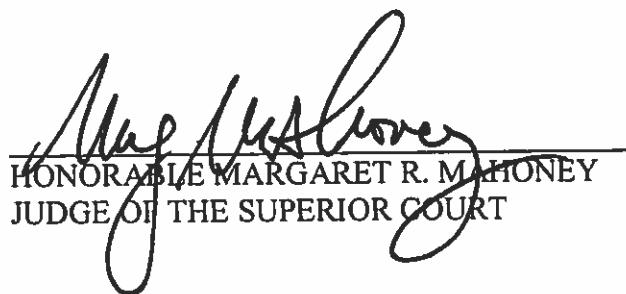 Meg Mahoney
HONORABLE MARGARET R. MAHONEY
JUDGE OF THE SUPERIOR COURT